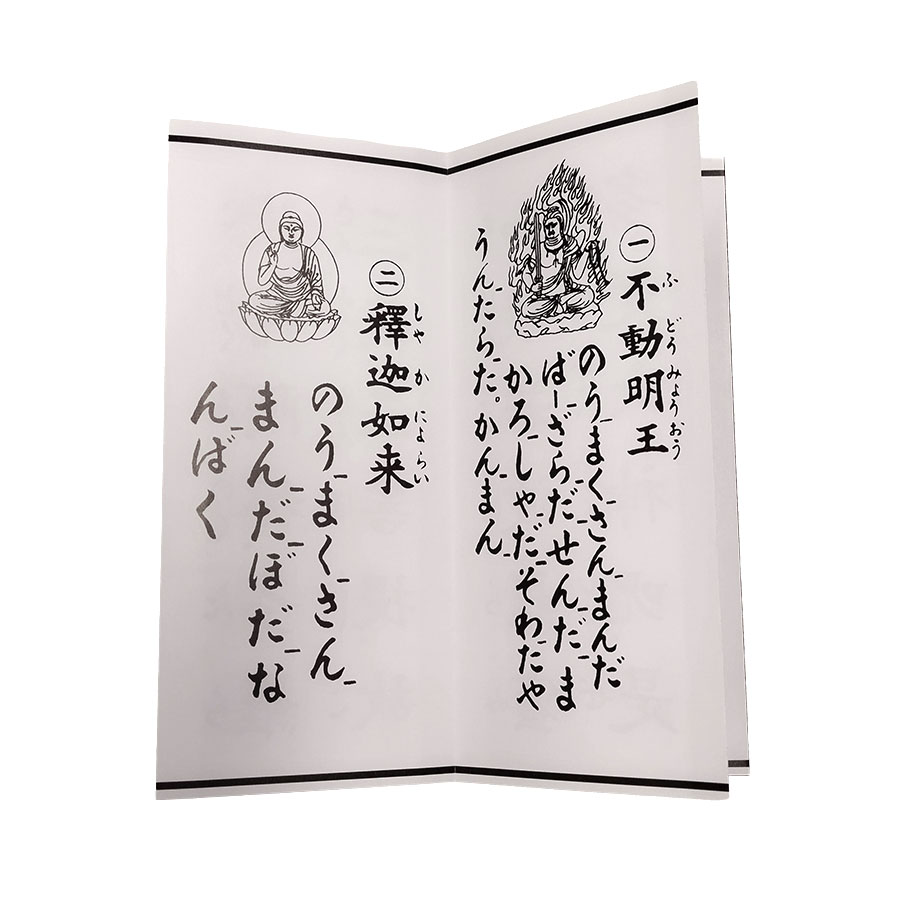 一 不動明王
ふどうみょうおう
のうまくさんまんだ
ばーざらだせんだま
かろしゃだそわたや
うんたらた。かんまん
二 釋迦如来
しゃかによらい
のうまくさん
まんだぼだな
んばく